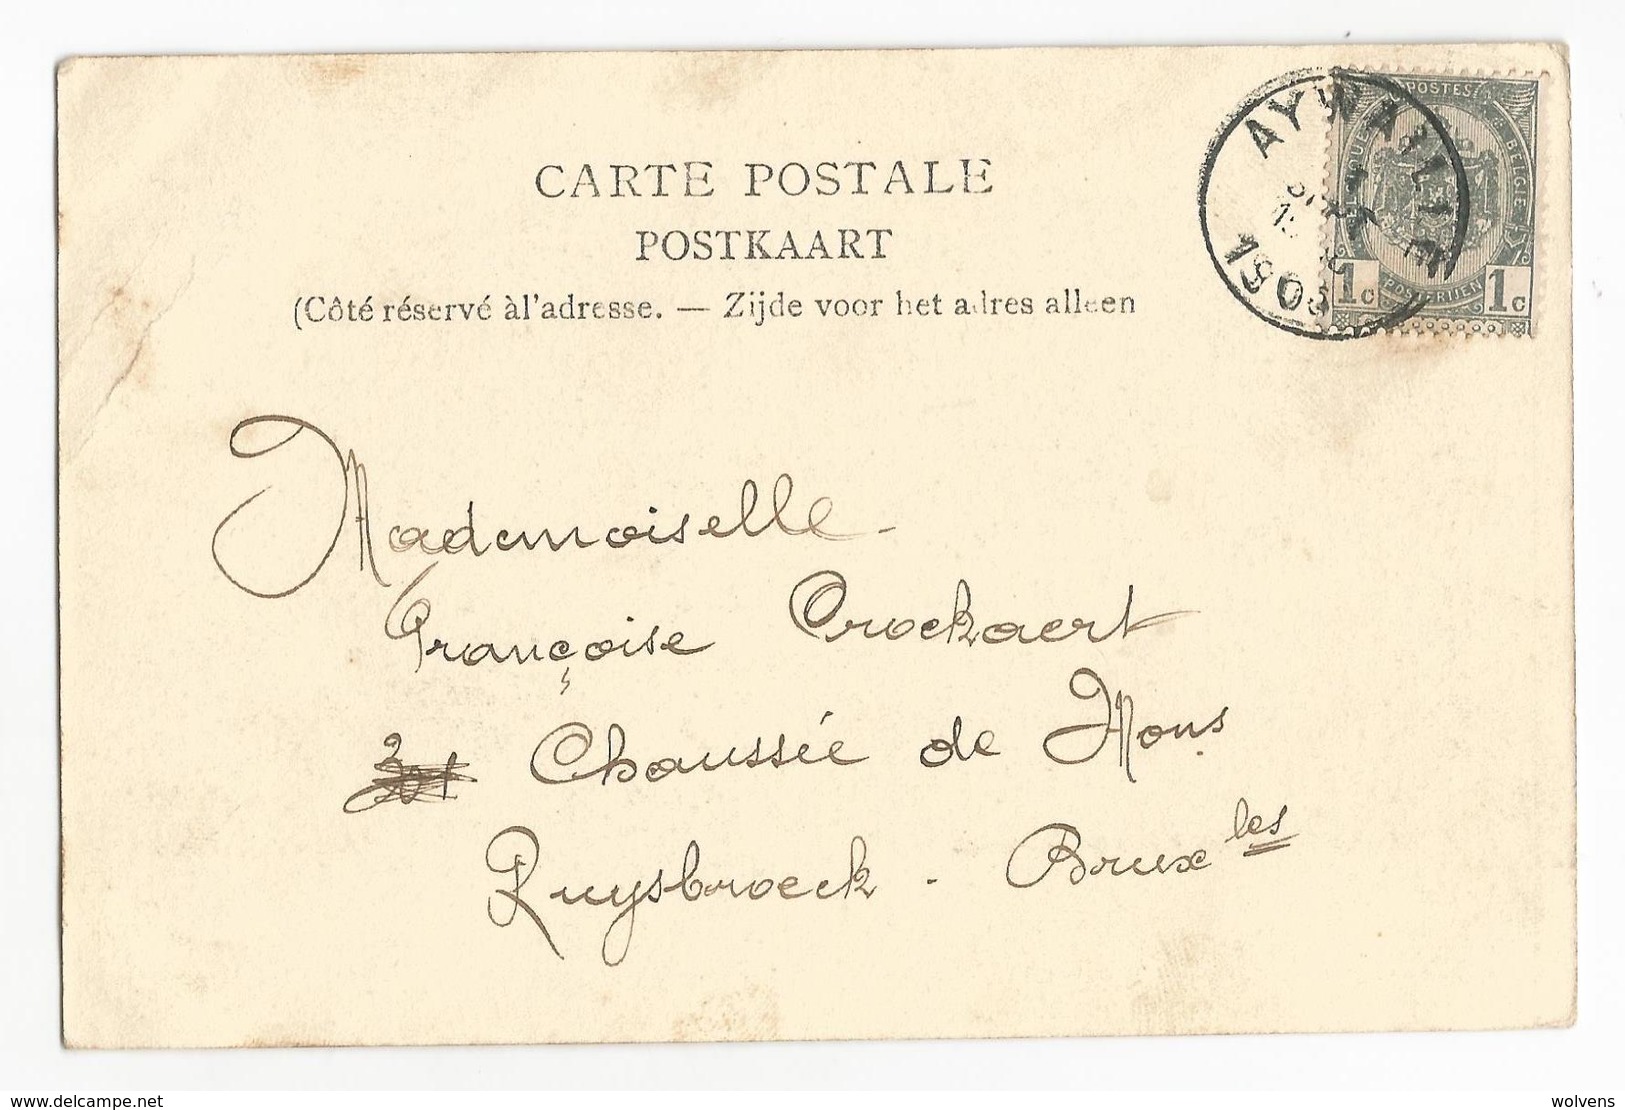 CARTE POSTALE
POSTKAART
(Côté réservé àl'adresse. — Zijde voor het adres alleen
AYWAILLE
POSTES
BELGIQUE
BELGIE
1c POSTERIJEN 1c
Mademoiselle -
Françoise Crockaert
Chaussée de Mons
Ruysbroeck - Brux les
www.delcampe.net
wolvens